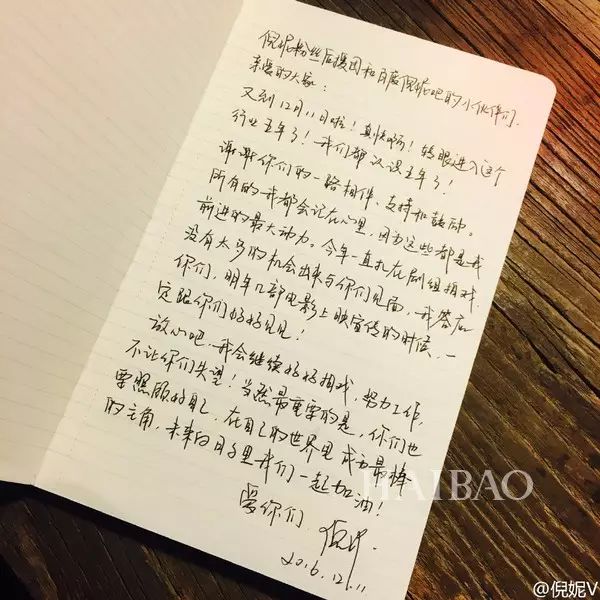 倪妮粉丝后援团和百度倪妮吧的小伙伴们,
亲爱的大家:
又到12月11日啦!真快啊!转眼进入这个
行业五年了!我们都认识五年了!
谢谢你们的一路相伴、支持和鼓励。
所有的我都会记在心里,因为这些都是我
前进的最大动力。今年一直扎在剧组拍戏,
没有太多的机会出来与你们见面,我答应
你们,明年几部电影上映宣传的时候,一
定跟你们好好见见!
放心吧,我会继续好好拍戏,努力工作,
不让你们失望!当然最重要的是,你们也
要照顾好自己,在自己的世界里成为最棒
的主角,未来的日子里我们一起加油!
爱你们 倪妮.
2016.12.11
HAIBAO
@倪妮V